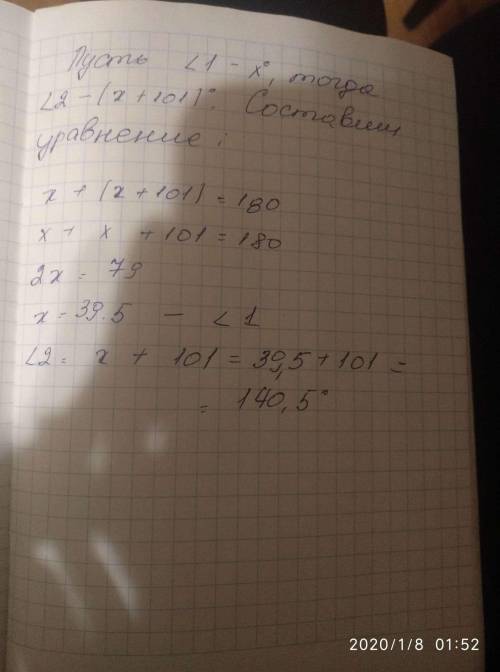 Пусть ∠1 - x°, тогда
∠2 - (x + 101)°. Составим
уравнение :
x + (x + 101) = 180
x + x + 101 = 180
2x = 79
x = 39.5 - ∠1
∠2 = x + 101 = 39,5 + 101 =
= 140,5°
2020/1/8 01:52